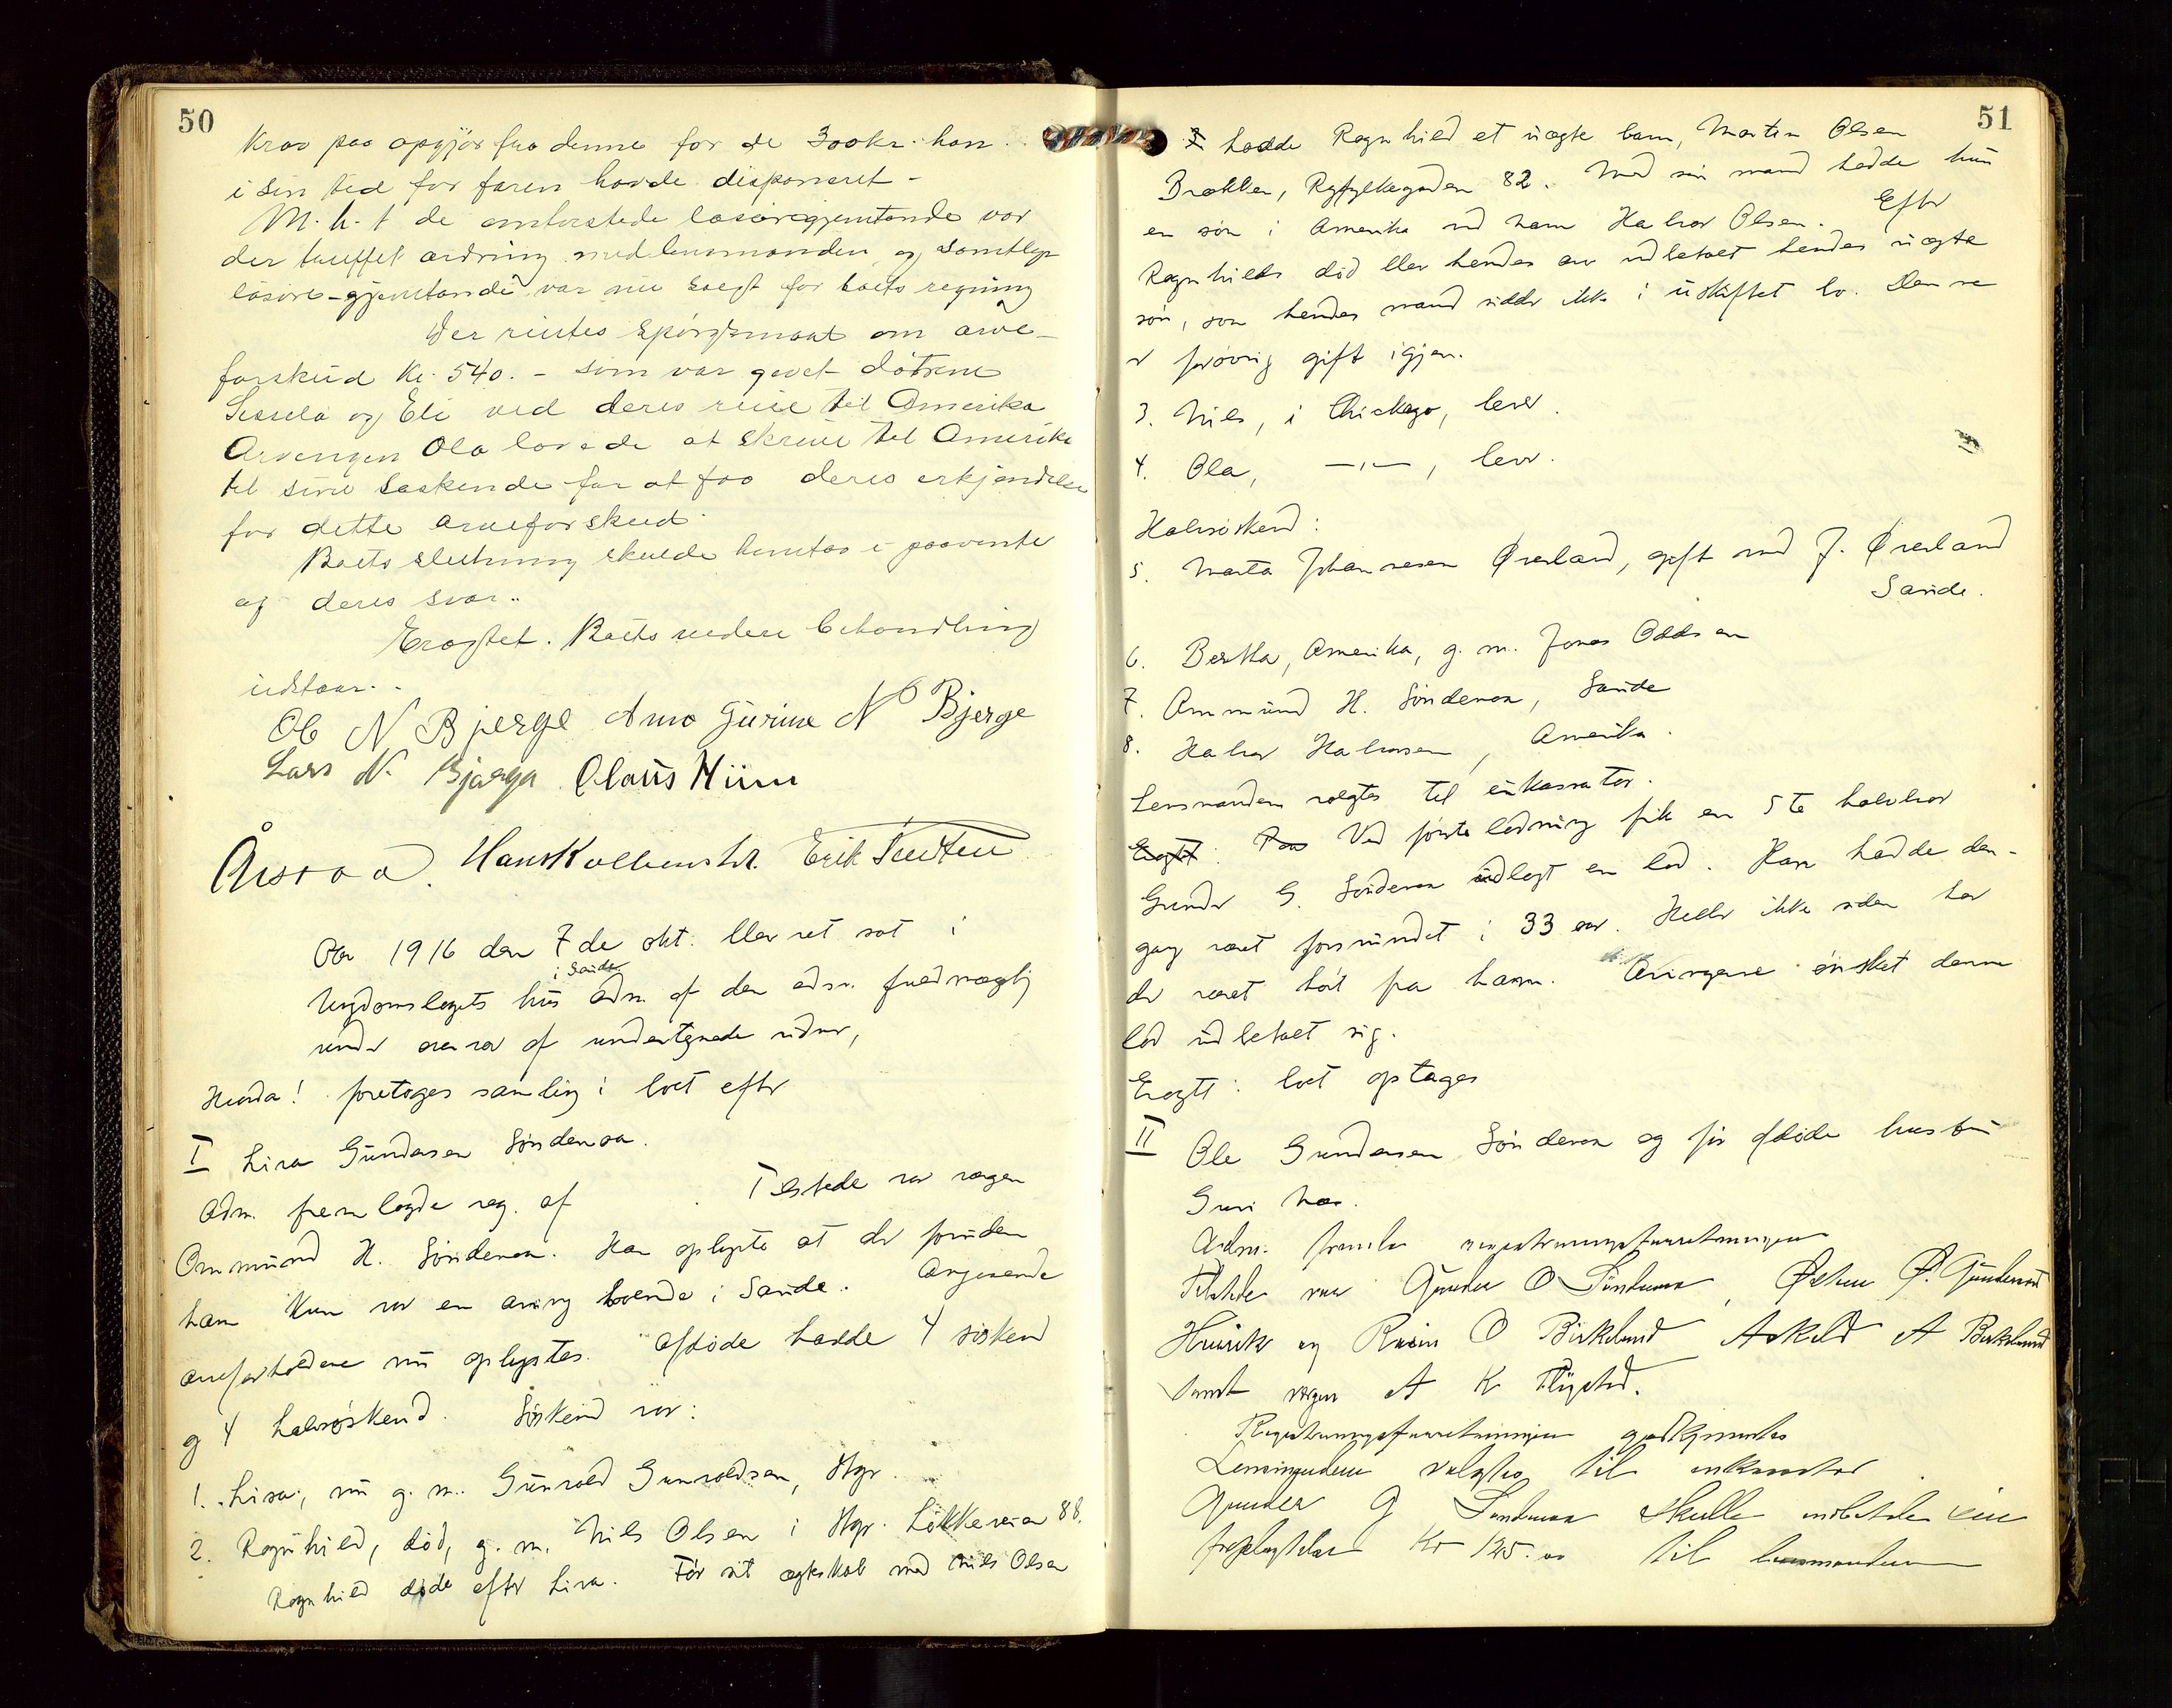 50
Krav paa opgjör fra denne for de 300 kr. han
i sin tid for faren havde disponeret -
M. h. t de omtvistede lösöregjenstande var
der truffet ordning med lensmanden og samtlige
lösöre-gjenstande var nu solgt for boets regning
Der reistes spörgsmaal om arve-
forskud kr. 540. - som var givet dötrene
Sisela og Eli ved deres reise til Amerika
Arvingen Ola lovede at skrive til Amerika
til sine söskende for at faa deres erkjendelse
for dette arveforskud.
Boets slutning skulde berotas i paavente
af deres svar..
Eragtet. Boets videre behandling
udstaar..
Ole N Bjerge Ane Gurine N Bjerge
Lars N. Bjerga Olaus Hiim
Hans Kolbenstv. Erik Tveiten
Aar 1916 den 7de okt. blev ret sat i
i Sande
Ungdomslagets hus adm. af den adm. fuldmægtig
under overvær af undertegnede vidner,
Hvorda! foretoges samling i boet efter
I Lisa Gundersen Söndenaa.
Adm. fremlagde reg. af Tilstede var vergen
Ommund H. Söndenaa. Han oplyste at der foruden
ham kun var en arving boende i Sande. Angaaende
arveforholdene nu oplystes. Afdöde hadde 4 söskend
og 4 halvsöskend. Söskend var:
1. Lisa, nu g. m. Gunvald Gunvaldsen, Stgr.
2. Ragnhild, död, g. m. Nils Olsen i Stgr. Lökkeveien 88.
Ragnhild döde efter Lisa. För sit ægteskab med Nils Olsen
51
hadde Ragnhild et uægte barn, Martin Olsen
Brekken, Ryfylkegaden 82. Med sin mand hadde hun
en sön i Amerika ved navn Halvor Olsen. Efter
Ragnhilds död blev hendes arv udbetalt hendes uægte
sön, som hendes mand sidder ikke i uskiftet bo. Denne
er forövrig gift igjen.
3. Nils, i Chickago, lever.
4. Ola, —"—, lever.
Halvsöskend:
5. Marta Johannesen Øverland, gift med J. Øverland
Sande.
6. Bertha, Amerika, g. m. Jonas Oddsen
7. Ommund H. Söndenaa, Sande
8. Halvor Halvorsen, Amerika.
Lensmanden valgtes til inkassator.
Eragtt: Paa Ved förste lodning fik en 5te halvbror
Gunder G. Söndenaa udlagt en lod. Han hadde den-
gang været forsvundet i 33 aar. Heller ikke siden har
der været hört fra ham. Arvingene önsket denne
lod udbetalt sig.
Eragtt: boet optages
II Ole Gundersen Söndenaa og för afdöde hustru
Guri Næs.
Adm. fremla registreringsforretningen
Tilstede var Gunder O Söndenaa, Östen Ø. Gundersen
Henrik og Rasm O Birkeland Askeld A Birkeland
samt vergen A K Fløgstad.
Registreringsforretningen godkjentes
Lensmanden valgtes til inkassator.
Gunder G Söndenaa skulle indbetale sine
kr 125.00 til lensmanden